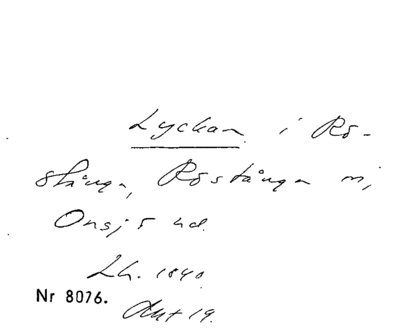 Lyckan i Rö-
stånga, Röstånga sn,
Onsjö hd.
Lh. 1840.
Nr 8076.
Akt 19.